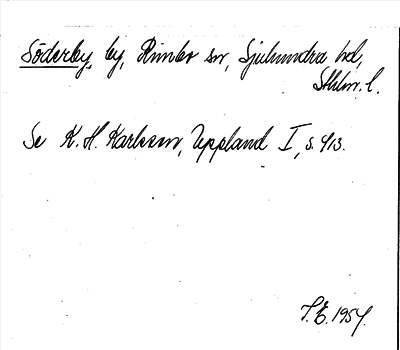 Söderby, by, Rimbo sn, Sjuhundra hd,
Sthlm. l.
Se K. H. Karlsson, Uppland I, s. 413.
T. E. 1954.